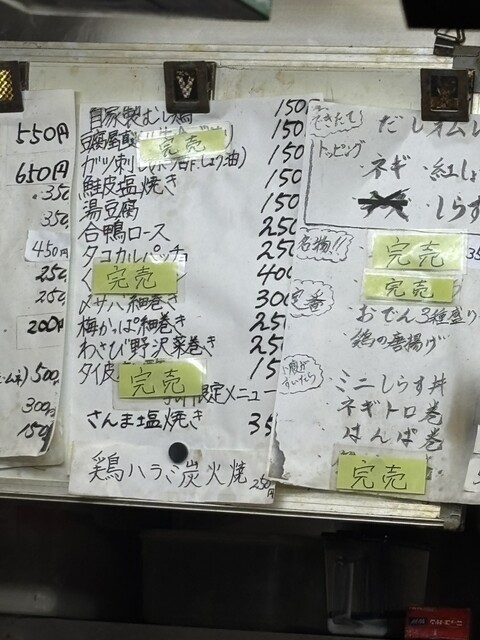 550円
650円
350
350
450円
250
250
200円
500
300円
150
自家製むし鶏 150
豆腐屋 完売 150
ガツ刺し しょうゆ) 150
鮭皮塩焼き 150
湯豆腐 150
合鴨ロース 250
タコカルパッチョ 250
完売 400
〆サバ細巻き 300
梅かっぱ細巻き 250
わさび野沢菜巻き 250
タイ皮 完売 15
限定メニュー
さんま塩焼き 35
鶏ハラミ炭火焼 250円
できたて! だしオムレ
トッピング
ネギ ・紅しょ
・しらす
名物!! 完売 35
完売
定番 おでん3種盛り
鶏の唐揚げ
小腹がすいたら ミニしらす丼
ネギトロ巻
はんぱ巻
完売